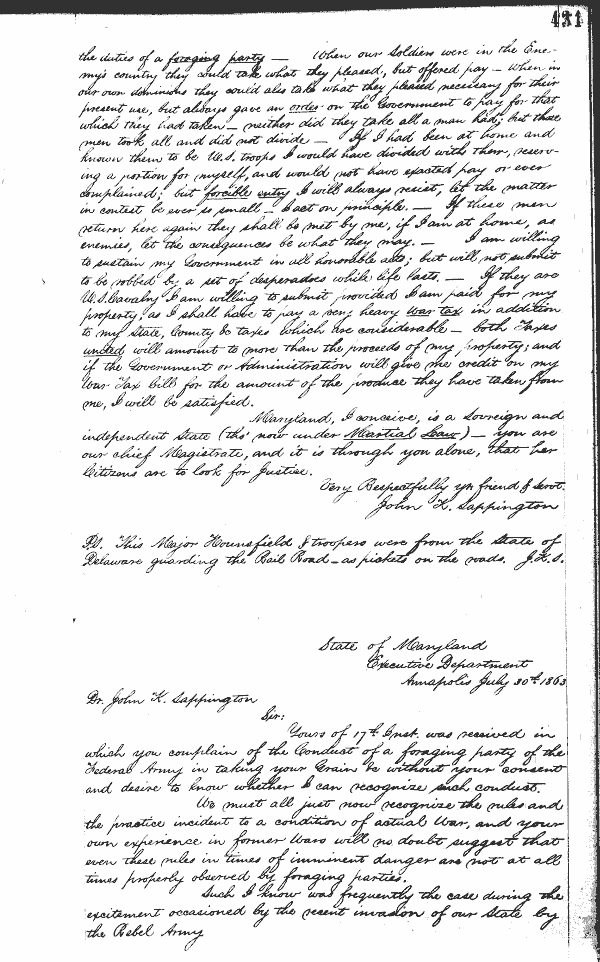 431
the duties of a foraging party — When our Soldiers were in the Ene-
my's country they could take what they pleased, but offered pay — when in
our own dominions they could also take what they pleased necessary for their
present use, but always gave an order on the Government to pay for that
which they had taken — neither did they take all a man had; but these
men took all and did not divide — If I had been at home and
known them to be U.S. troops I would have divided with them, reserv-
ing a portion for myself, and would not have exacted pay or ever
complained; but forcible entry I will always resist, let the matter
in contest be ever so small — I act on principle. — If these men
return here again they shall be met by me, if I am at home, as
enemies, let the consequences be what they may. — I am willing
to sustain my Government in all honorable acts; but will not submit
to be robbed by a set of desperadoes while life lasts. — If they are
U.S. Cavalry I am willing to submit provided I am paid for my
property; as I shall have to pay a very heavy War tax in addition
to my State, County & taxes which are considerable — both Taxes
united will amount to more than the proceeds of my property; and
if the Government or Administration will give me credit on my
War Tax bill for the amount of the produce they have taken from
me, I will be satisfied.
Maryland, I conceive, is a Sovreign and
independent State (tho' now under Martial Law) — you are
our chief Magistrate, and it is through you alone, that her
Citizens are to look for Justice.
Very Respectfully yr friend & Servt.
John K. Sappington
P.S. This Major Hounsfield & troopers were from the State of
Delaware guarding the Rail Road — as pickets on the roads. J.K.S.
State of Maryland
Executive Department
Annapolis July 30th 1863
Dr. John K. Sappington
Sir:
Yours of 17th Inst. was received in
which you complain of the Conduct of a foraging party of the
Federal Army in taking your Grain &c without your consent
and desire to know whether I can recognize such conduct.
We must all just now recognize the rules and
the practice incident to a condition of actual War, and your
own experience in former Wars will no doubt suggest that
even these rules in times of imminent danger are not at all
times properly observed by foraging parties.
Such I know was frequently the case during the
excitement occasioned by the recent invasion of our State by
the Rebel Army